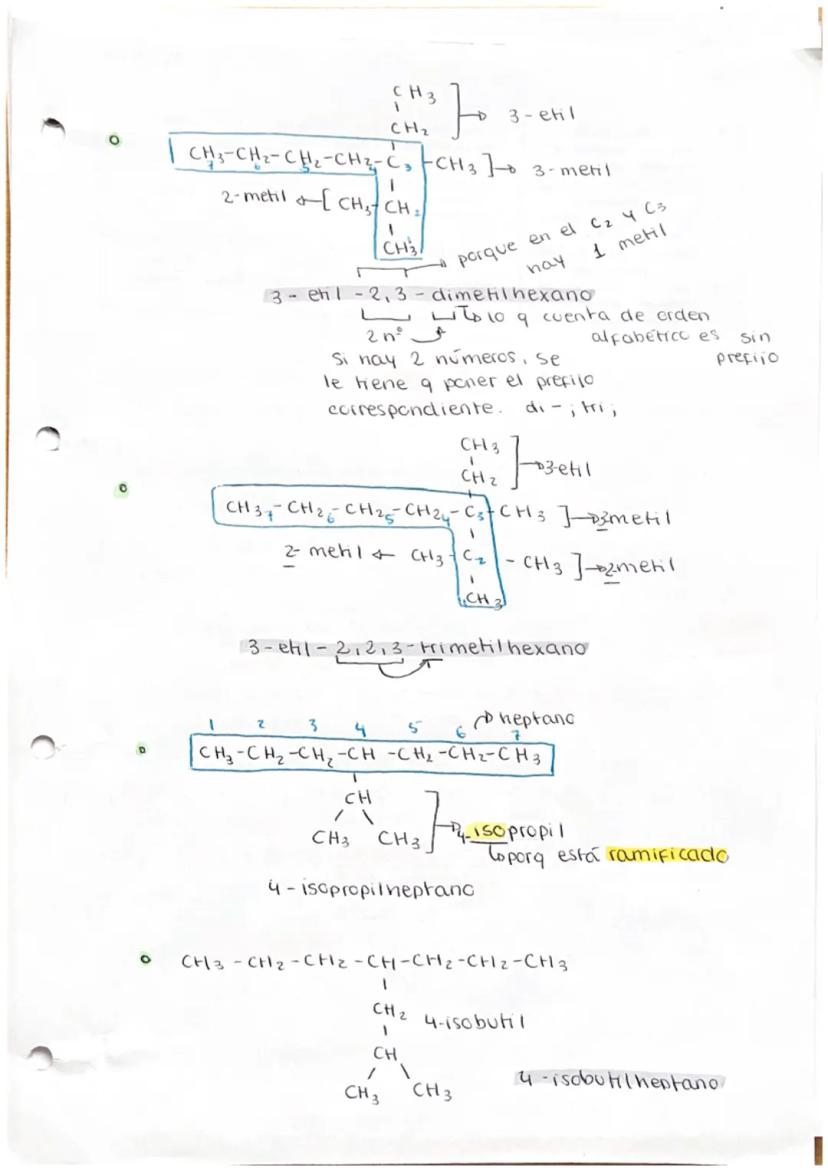 CH3
CH2
3-etil
CH3-CH2-CH2-CH2-C3-CH3
7 6 5 4
3-metil
2-metil
CH3-CH2
CH3 1
porque en el C2 y C3
hay 1 metil
3-etil-2,3-dimetilhexano
2 nº
lo q cuenta de orden
alfabético es sin
prefijo
Si hay 2 números, se
le tiene q poner el prefijo
correspondiente. di-; tri;
CH3
CH2
3-etil
CH3 7-CH2 6-CH2 5-CH2 4-C3-CH3
3metil
2-metil
CH3-C2-CH3
2metil
CH3
3-etil-2,2,3-trimetilhexano
heptano
1 2 3 4 5 6 7
CH3-CH2-CH2-CH-CH2-CH2-CH3
CH
CH3 CH3
4-isopropil
porq está ramificado
4-isopropilheptano
CH3-CH2-CH2-CH-CH2-CH2-CH3
CH2
4-isobutil
CH
CH3 CH3
4-isobutilheptano